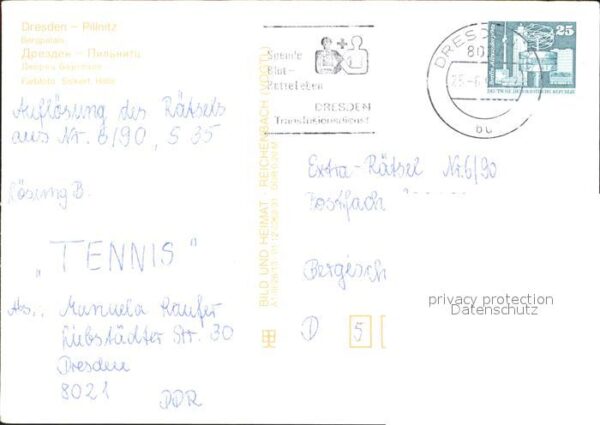 Dresden - Pillnitz
Bergpalais
Дрезден - Пильнитц
Farbfoto:
Auflösung des Rätsels
aus Nr. 6/90, S 35
Lösung B.
„TENNIS"
Abs.: Manuela
Liebstädter Str. 30
Dresden
8021
DDR
BILD UND HEIMAT · REICHENBACH (VOGTL)
Spende
Blut-
Rette Leben
DRESDEN
Transfusionsdienst
DRESDEN
25
DEUTSCHE DEMOKRATISCHE REPUBLIK
Extra-Rätsel Nr. 6/90
Postfach
Bergisch
D 5
privacy protection
Datenschutz